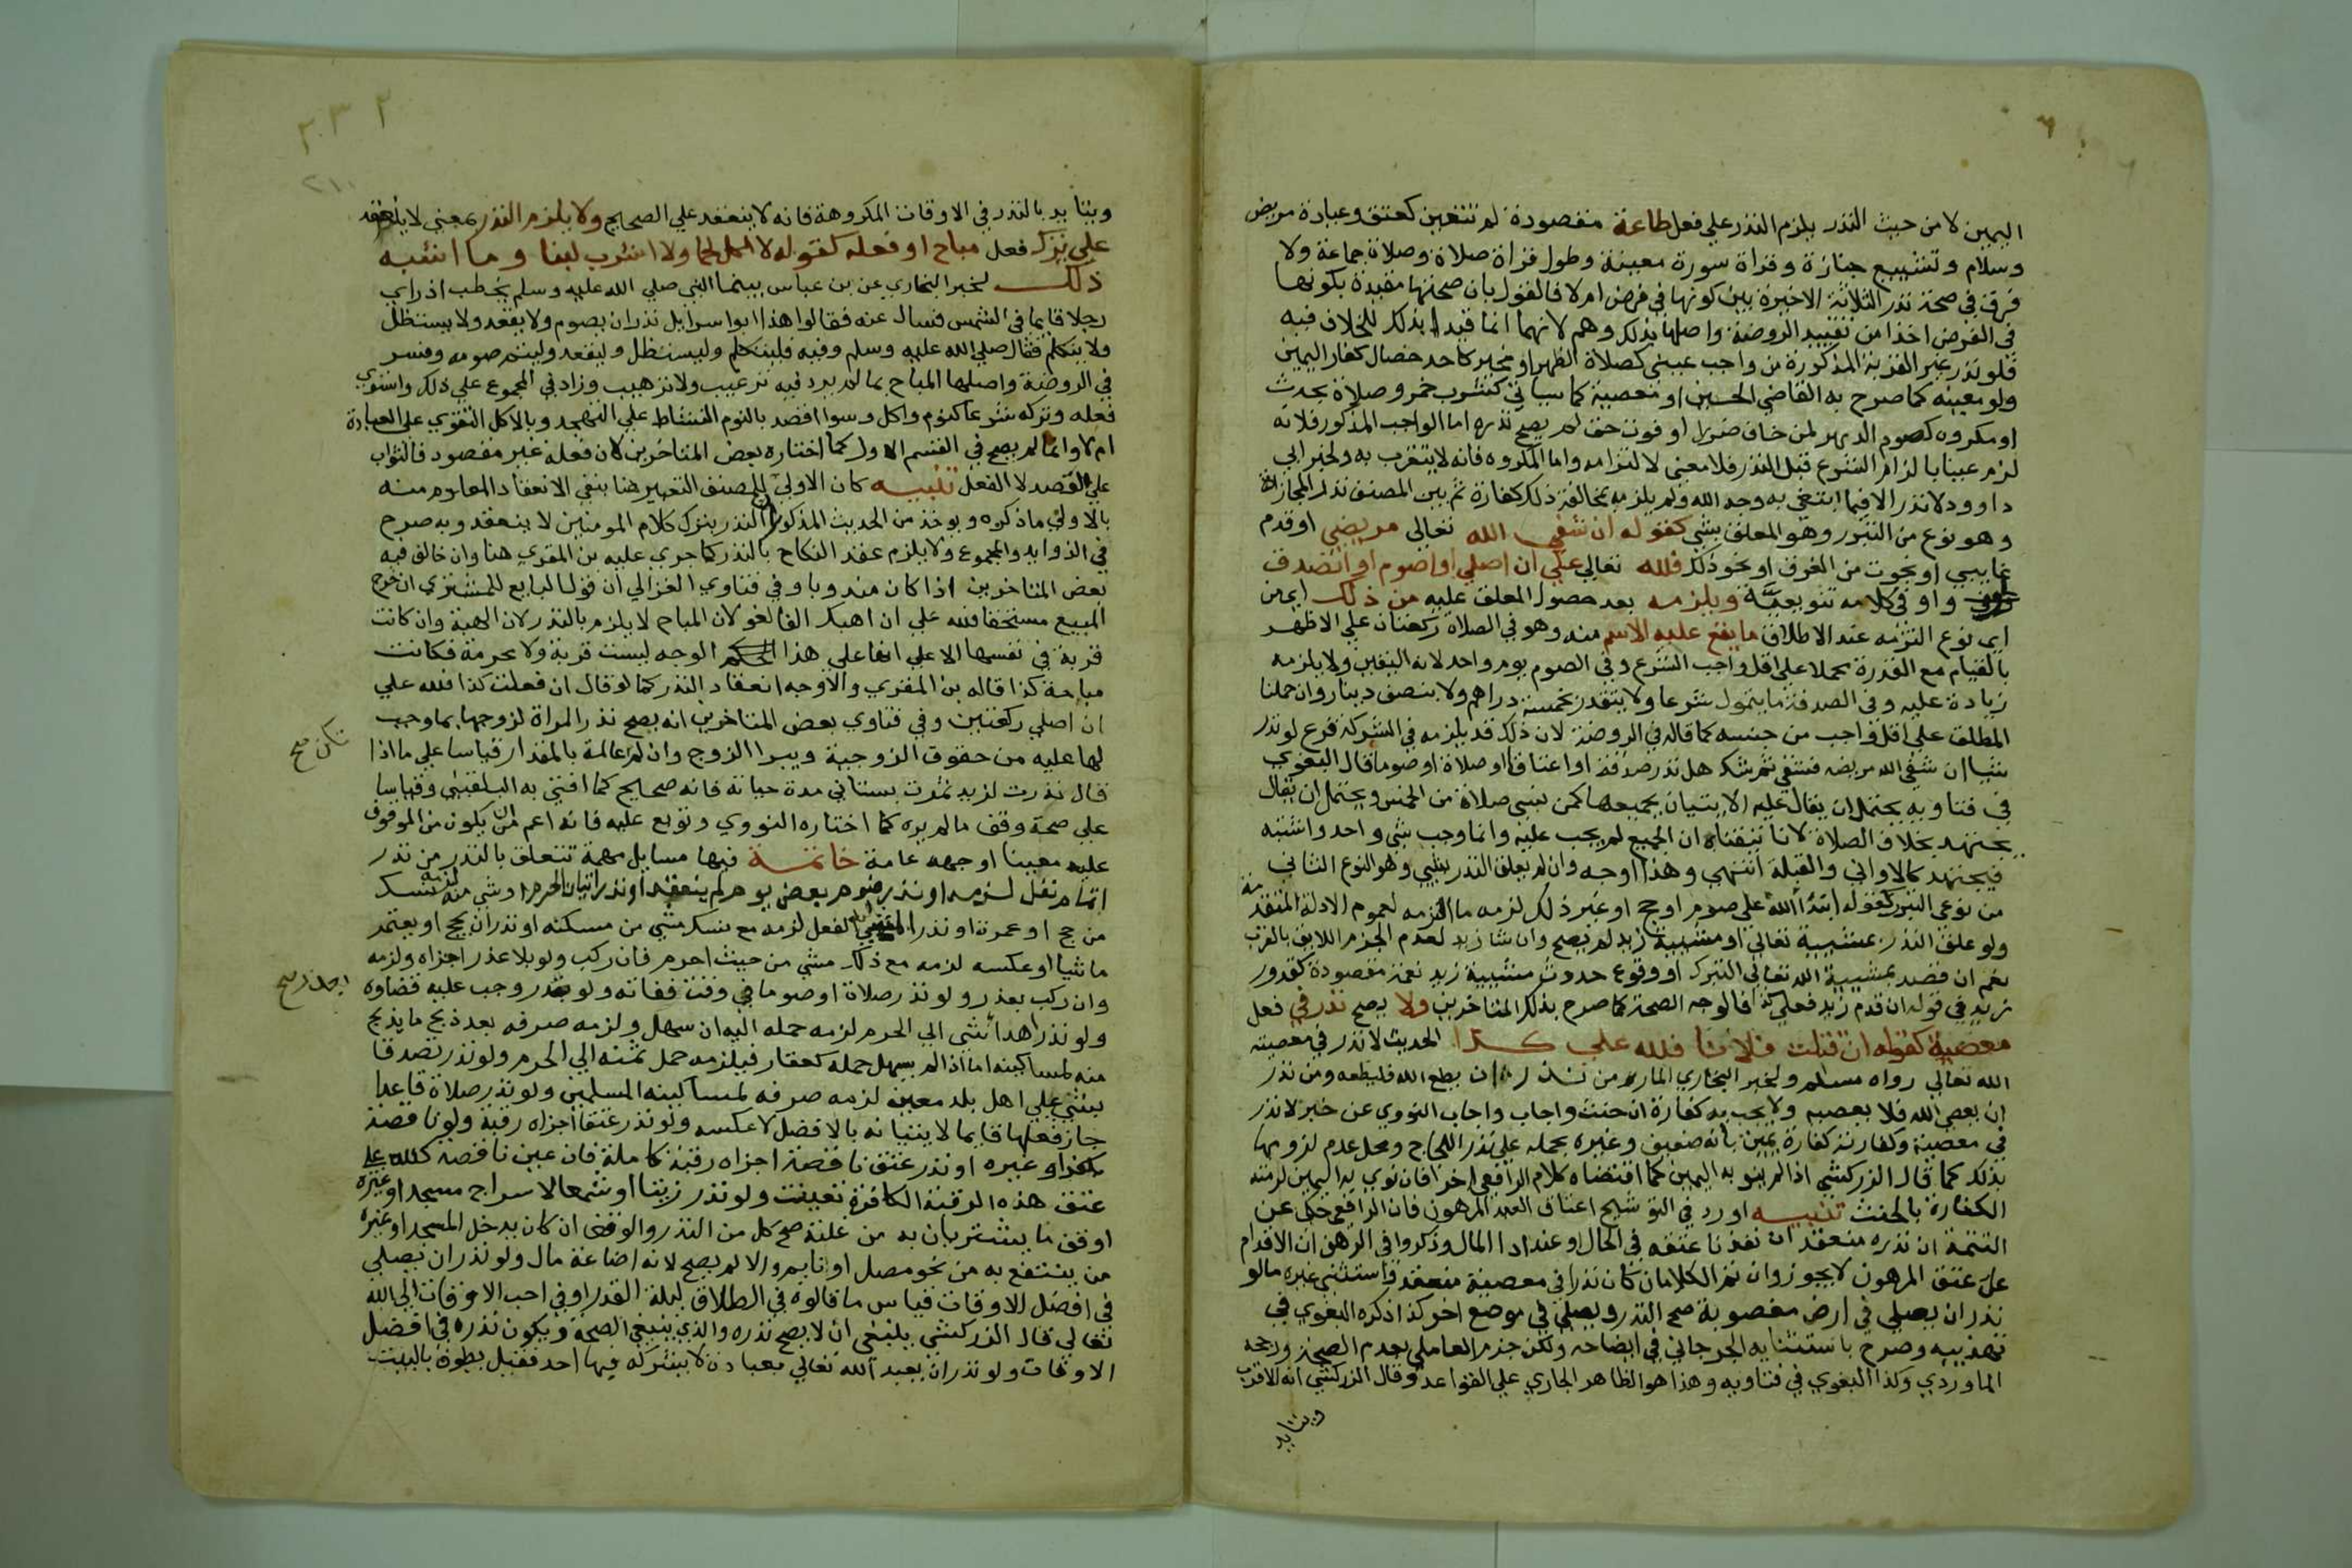 اليمين لا من حيث النذر يلزم النذر علي فعل طاعة مقصودة لم تتعين كعتق وعيادة مريض
وسلام وتشييع جنازة وقراة سورة معينة وطول قراة صلاة وصلاة جماعة ولا
فرق في صحة نذر الثلاثة الاخيرة بين كونها في فرض ام لا فالقول بان صحتها مقيدة بكونها
في الفرض اخذا من تقييد الروضة واصلها بذلك وهم لانهما انما قيدا بذلك للخلاف فيه
فلو نذر غير القربة المذكورة من واجب عيني كصلاة الظهر او مخير كاحد خصال كفار اليمين
ولو معينه كما صرح به القاضي الحسين او معصية كما سياتي كشرب خمر وصلاة بحدث
او مكروه كصوم الدهر لمن خاف ضررا او فوت حق لم يصح نذره اما الواجب المذكور فلانه
لزم عينا بالزام الشرع قبل النذر فلا معني لالتزامه واما المكروه فانه لا يتقرب به ولخبر ابي
داوود لا نذر الا فيما ابتغي به وجه الله ولم يلزمه بمخالفة ذلك كفارة ثم بين المصنف نذر المجازاة
وهو نوع من التبرر وهو المعلق بشي كقوله ان شفي الله تعالي مريضي او قدم
غايبي او نجوت من الغرق او نحو ذلك فلله تعالي علي ان اصلي او اصوم او اتصدق
واو في كلامه تنويعية ويلزمه بعد حصول المعلق عليه من ذلك اي من
اي نوع التزمه عند الاطلاق ما يقع عليه الاسم منه وهو في الصلاة ركعتان علي الاظهر
بالقيام مع القدرة حملا علي اقل واجب الشرع وفي الصوم يوم واحد لانه اليقين ولا يلزمه
زيادة عليه وفي الصدقة ما يتمول شرعا ولا يتقدر بخمسة دراهم ولا بنصف دينار وان حملنا
المطلق علي اقل واجب من جنسه كما قاله في الروضة لان ذلك قد يلزمه في الشركة فرع لو نذر
شيا ان شفي الله مريضه فشفي ثم شك هل نذر صدقة او اعتاقا او صلاة او صوما قال البغوي
في فتاويه يحتمل ان يقال عليه الاتيان بجميعها كمن نسي صلاة من الخمس ويحتمل ان يقال
يجتهد بخلاف الصلاة لانا تيقنا ان الجميع لم يجب عليه وانما وجب شي واحد واشتبه
فيجتهد كالاواني والقبلة انتهي وهذا اوجه وان لم يعلق النذر بشي وهو النوع الثاني
من نوعي التبرر كقوله ابتدا لله علي صوم او حج او غير ذلك لزمه ما التزمه لعموم الادلة المتقدمة
ولو علق النذر بمشيية تعالي او مشيية زيد لم يصح وان شا زيد لعدم الجزم اللايق بالقرب
نعم ان قصد بمشيية الله تعالي التبرك او وقوع حدوث مشيية زيد نعمة مقصودة كقدور
زيد في قوله ان قدم زيد فعلي كذا فالوجه الصحة كما صرح بذلك المتاخرين ولا يصح نذر في فعل
معصية كقوله ان قتلت فلانا فلله علي كذا الحديث لا نذر في معصية
الله تعالي رواه مسلم ولخبر البخاري المار من نذر ان يطع الله فليطعه ومن نذر
ان يعصي الله فلا يعصه ولا يجب به كفارة ان حنث واجاب واجاب النووي عن خبر لا نذر
في معصية وكفارته كفارة يمين بانه ضعيف وغيره بحمله علي نذر اللجاج ومحل عدم لزومها
بذلك كما قال الزركشي اذا لم ينو به اليمين كما اقتضاه كلام الرافعي اخرا فان نوي به اليمين لزمته
الكفارة بالحنث تنبيه اورد في التوشيح اعتاق العبد المرهون فان الرافعي حكي عن
التتمة ان نذره منعقد ان نفذنا عتقه في الحال او عند ادا المال وذكروا في الرهن ان الاقدام
علي عتق المرهون لا يجوز وان تم الكلامان كان نذرا في معصية منعقدة فاستثني غيره ما لو
نذر ان يصلي في ارض مغصوبة صح النذر ويصلي في موضع اخر كذا ذكره البغوي في
تهذيبه وصرح باستثنايه الجرجاني في ايضاحه ولكن جزم العاملي بعدم الصحة ورجحه
الماوردي وكذا البغوي في فتاويه وهذا هو الظاهر الجاري علي القواعد وقال الزركشي انه الاقرب
ويتايد
ويتايد بالنذر في الاوقات المكروهة فانه لا ينعقد علي الصحيح ولا يلزم النذر بمعني لا ينعقد
علي ترك فعل مباح او فعله كقوله لا اكل لحما ولا اشرب لبنا وما اشبه
ذلك لخبر البخاري عن بن عباس بينما النبي صلي الله عليه وسلم يخطب اذ راي
رجلا قايما في الشمس فسال عنه فقالوا هذا ابو اسرايل نذر ان يصوم ولا يقعد ولا يستظل
ولا يتكلم فقال صلي الله عليه وسلم وفيه فليتكلم وليستظل وليقعد وليتم صومه وفسر
في الروضة واصلها المباح بما لم يرد فيه ترغيب ولا ترهيب وزاد في المجموع علي ذلك واستوي
فعله وتركه شرعا كنوم واكل وسوا اقصد بالنوم النشاط علي التهجد وبالاكل التقوي علي العبادة
ام لا وانما لم يصح في القسم الاول كما اختاره بعض المتاخرين لان فعله غير مقصود فالثواب
علي القصد لا الفعل تنبيه كان الاولي للمصنف التعبير هنا بنفي الانعقاد المعلوم منه
بالاولي ما ذكره ويوخذ من الحديث المذكور ان النذر بترك كلام المومنين لا ينعقد وبه صرح
في الزوايد والمجموع ولا يلزم عقد النكاح بالنذر كما جري عليه بن المقري هنا وان خالف فيه
بعض المتاخرين اذا كان مندوبا وفي فتاوي الغزالي ان قول البايع للمشتري ان خرج
المبيع مستحقا فلله علي ان اهبك الفا لغو لان المباح لا يلزم بالنذر لان الهبة وان كانت
قربة في نفسها الا علي انها علي هذا الوجه ليست قربة ولا محرمة فكانت
مباحة كذا قاله بن المقري والاوجه انعقاد النذر كما لو قال ان فعلت كذا فلله علي
ان اصلي ركعتين وفي فتاوي بعض المتاخرين انه يصح نذر المراة لزوجها بما وجب
لها عليه من حقوق الزوجية ويبرا الزوج وان لم عالمة بالمقدار قياسا علي ما اذا
تكن صح
قال نذرت لزيد ثمرت بستاني مدة حياته فانه صحيح كما افتي به البلقيني وقياسا
علي صحة وقف ما لم يره كما اختاره النووي وتوبع عليه فانه اعم من ان يكون من الموقوف
عليه معينا او جهه عامة خاتمة فيها مسايل مهمة تتعلق بالنذر من نذر
اتمام نفل لزمه او نذر صوم بعض يوم لم ينعقد او نذر اتيان الحرم او شي منه لزمه نسك
من حج او عمرة او نذر المشي اليه الفعل لزمه مع نسك مشي من مسكنه او نذر ان يحج او يعتمر
ماشيا او عكسه لزمه مع ذلك مشي من حيث احرم فان ركب ولو بلا عذر اجزاه ولزمه
وان ركب بعذر ولو نذر صلاة او صوما في وقت ففاته ولو بعذر وجب عليه قضاوه
ولو نذر اهدا شي الي الحرم لزمه حمله اليه ان سهل ولزمه صرفه بعد ذبح ما يذبح
منه لمساكينه اما اذا لم يسهل حمله كعقار فيلزمه حمل ثمنه الي الحرم ولو نذر تصدقا
بشي علي اهل بلد معين لزمه صرفه لمساكينه المسلمين ولو نذر صلاة قاعدا
جاز فعلها قايما لاتيانه بالافضل لا عكسه ولو نذر عتقا اجزاه رقبة ولو ناقصة
ككفر او غيره او نذر عتق ناقصة اجزاه رقبة كاملة فان عين ناقصه كلله علي
عتق هذه الرقبة الكافرة تعينت ولو نذر زيتا او شمعا لاسراج مسجد او غيره
او وقف ما يشتريان به من غلته صح كل من النذر والوقف ان كان يدخل المسجد او غيره
من ينتفع به من نحو مصل او نايم والا لم يصح لانه اضاعة مال ولو نذر ان يصلي
في افضل الاوقات فقياس ما قالوه في الطلاق ليلة القدر او في احب الاوقات الي الله
تعالي قال الزركشي ينبغي ان لا يصح نذره والذي ينبغي الصحة ويكون نذره في افضل
الاوقات ولو نذر ان يعبد الله تعالي بعبادة لا يشركه فيها احد فقيل يطوف بالبيت